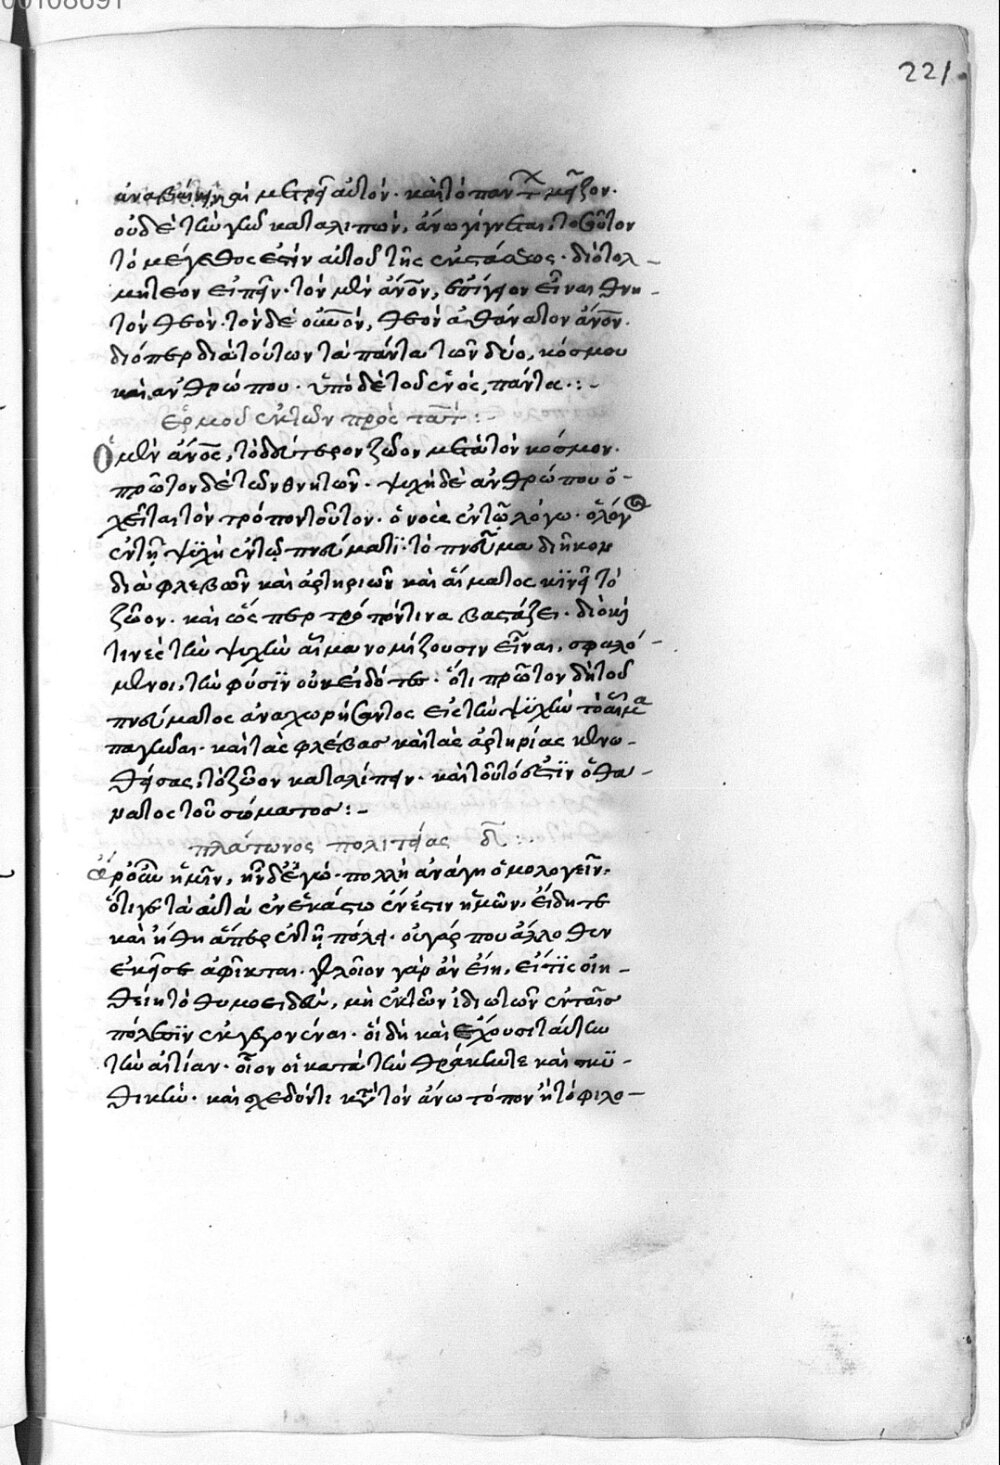 00108691
221
ἀναβαίνειν καὶ μετρεῖ αὐτόν. καὶ τὸ πάντ μεῖζον.
οὐδὲ τὴν γῆν καταλιπὼν, ἄνω γίγνεται, τοσοῦτον
τὸ μέγεθος ἐστὶν αὐτοῦ τῆς ἐκστάσεως. διὸ τολ-
μητέον εἰπεῖν. τὸν μὲν ἄνον, ἐπίγειον εἶναι θνη-
τὸν θεὸν. τὸν δὲ οὐνον, θεὸν ἀθάνατον ἄνον.
διόπερ διὰ τούτων τὰ πάντα τῶν δύο, κόσμου
καὶ ἀνθρώπου. ὑπὸ δὲ τοῦ ἑνὸς, πάντα.:-
ἑρμοῦ ἐκ τῶν πρὸς τατ:-
Ὁ μὲν ἄνος, τὸ δεύτερον ζῶον μετὰ τὸν κόσμον.
πρῶτον δὲ τῶν θνητῶν. ψυχὴ δὲ ἀνθρώπου ὀ-
χεῖται τὸν τρόπον τοῦτον. ὁ νοῦς ἐν τῷ λόγω. ὁ λόγος
ἐν τῇ ψυχῇ ἐν τῷ πνεύματι. τὸ πνεῦμα διῆκον
διὰ φλεβῶν καὶ ἀρτηριῶν καὶ αἵματος κινεῖ τὸ
ζῶον. καὶ ὥσπερ τρόπόν τινα βαστάζει. διὸ καὶ
τινὲς τὴν ψυχὴν αἷμα νομίζουσιν εἶναι, σφαλό-
μενοι, τὴν φύσιν οὐκ εἰδότες. ὅτι πρῶτον δὴ τοῦ
πνεύματος ἀναχωρήσαντος εἰς τὴν ψυχὴν τὸ αἷμα
παγῆναι. καὶ τὰς φλέβας καὶ τὰς ἀρτηρίας κενω-
θήσας, τὸ ζῶον καταλίπειν. καὶ τοῦτό ἐστιν ὁ θά-
νατος τοῦ σώματος:-
πλάτωνος πολιτείας δ:.
ἆρ οὖν ἡμῖν, ἦν δ ἐγώ. πολλὴ ἀνάγη ὁμολογεῖν,
ὅτι γε τὰ αὐτὰ ἐν ἑκάστω ἔνεστιν ἡμῶν, εἴδη τε
καὶ ἤθη ἅπερ ἐν τῇ πόλει. οὐ γάρ που ἄλλοθεν
ἐκεῖσε ἀφῖκται. γελοῖον γὰρ ἂν εἴη, εἴ τις οἰη-
θείη τὸ θυμοειδὲς, μὴ ἐκ τῶν ἰδιωτῶν ἐν ταῖς
πόλεσιν ἐγγεγονέναι. οἳ δὴ καὶ ἔχουσι ταύτην
τὴν αἰτίαν. οἷον οἱ κατὰ τὴν θράκην τε καὶ σκυ-
θικὴν. καὶ σχεδόν τι κατὰ τὸν ἄνω τόπον ἢ τὸ φιλο-